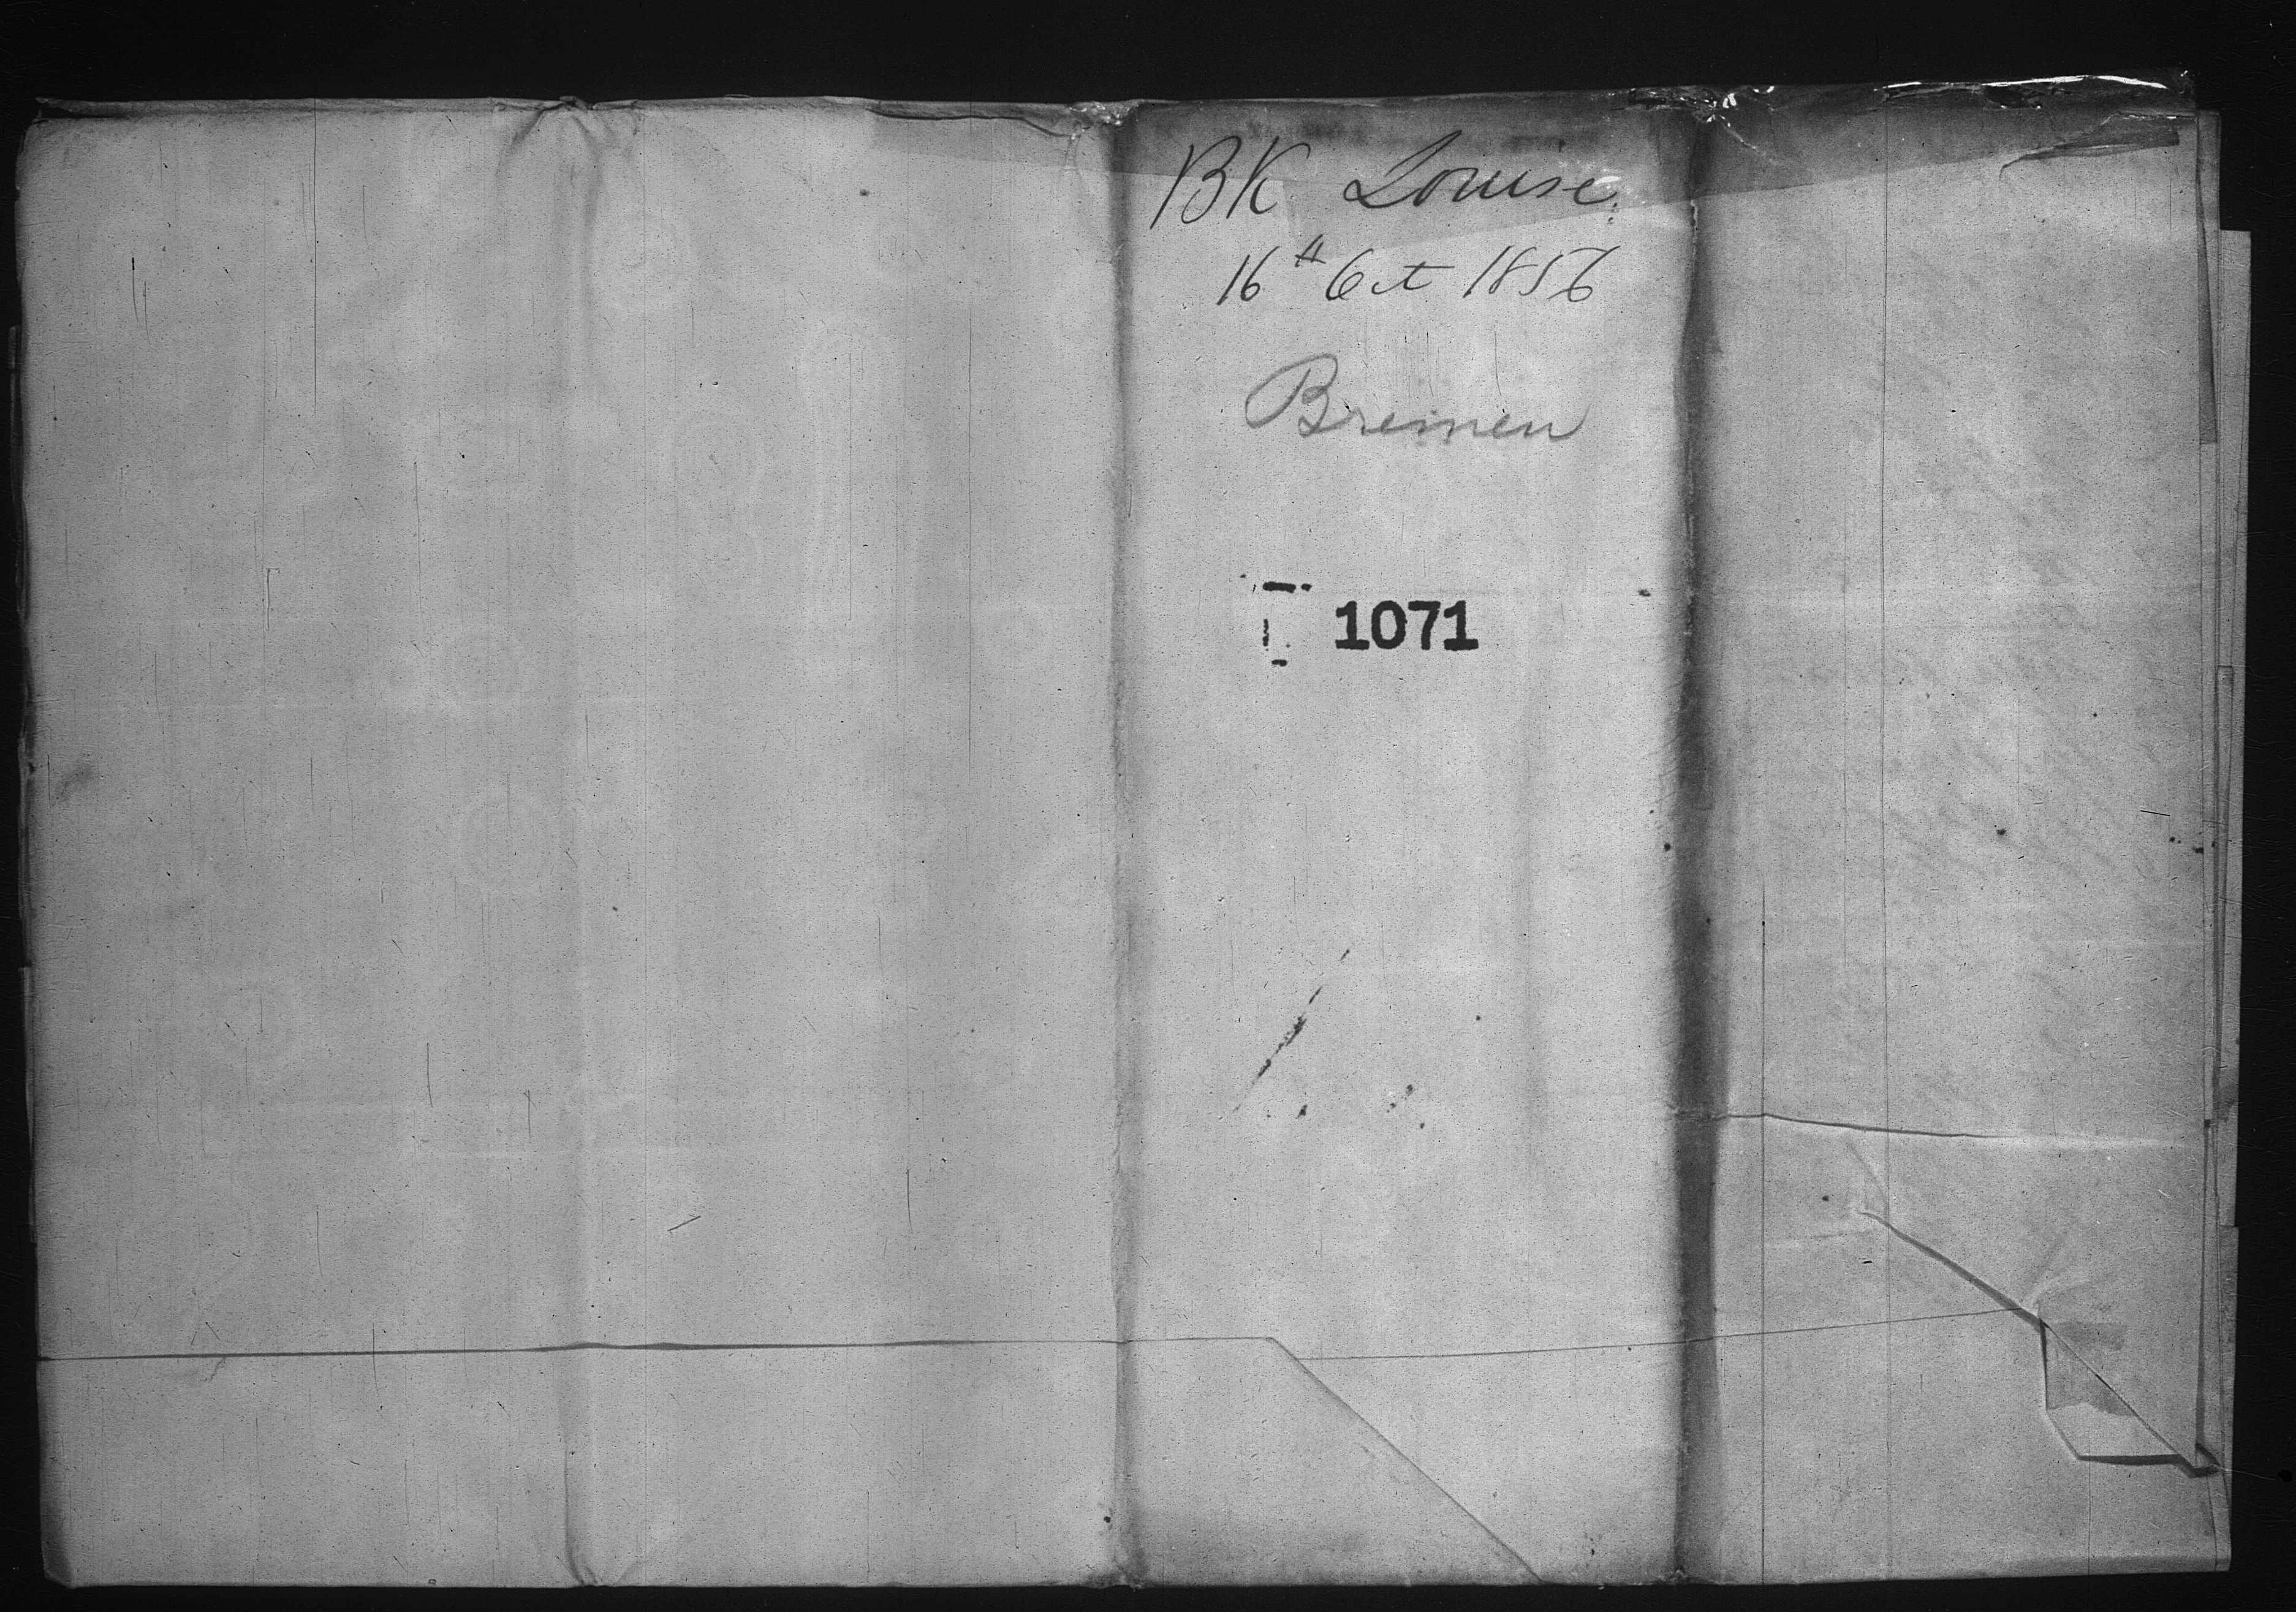 BK Louise
16th Oct 1856
Bremen
1071